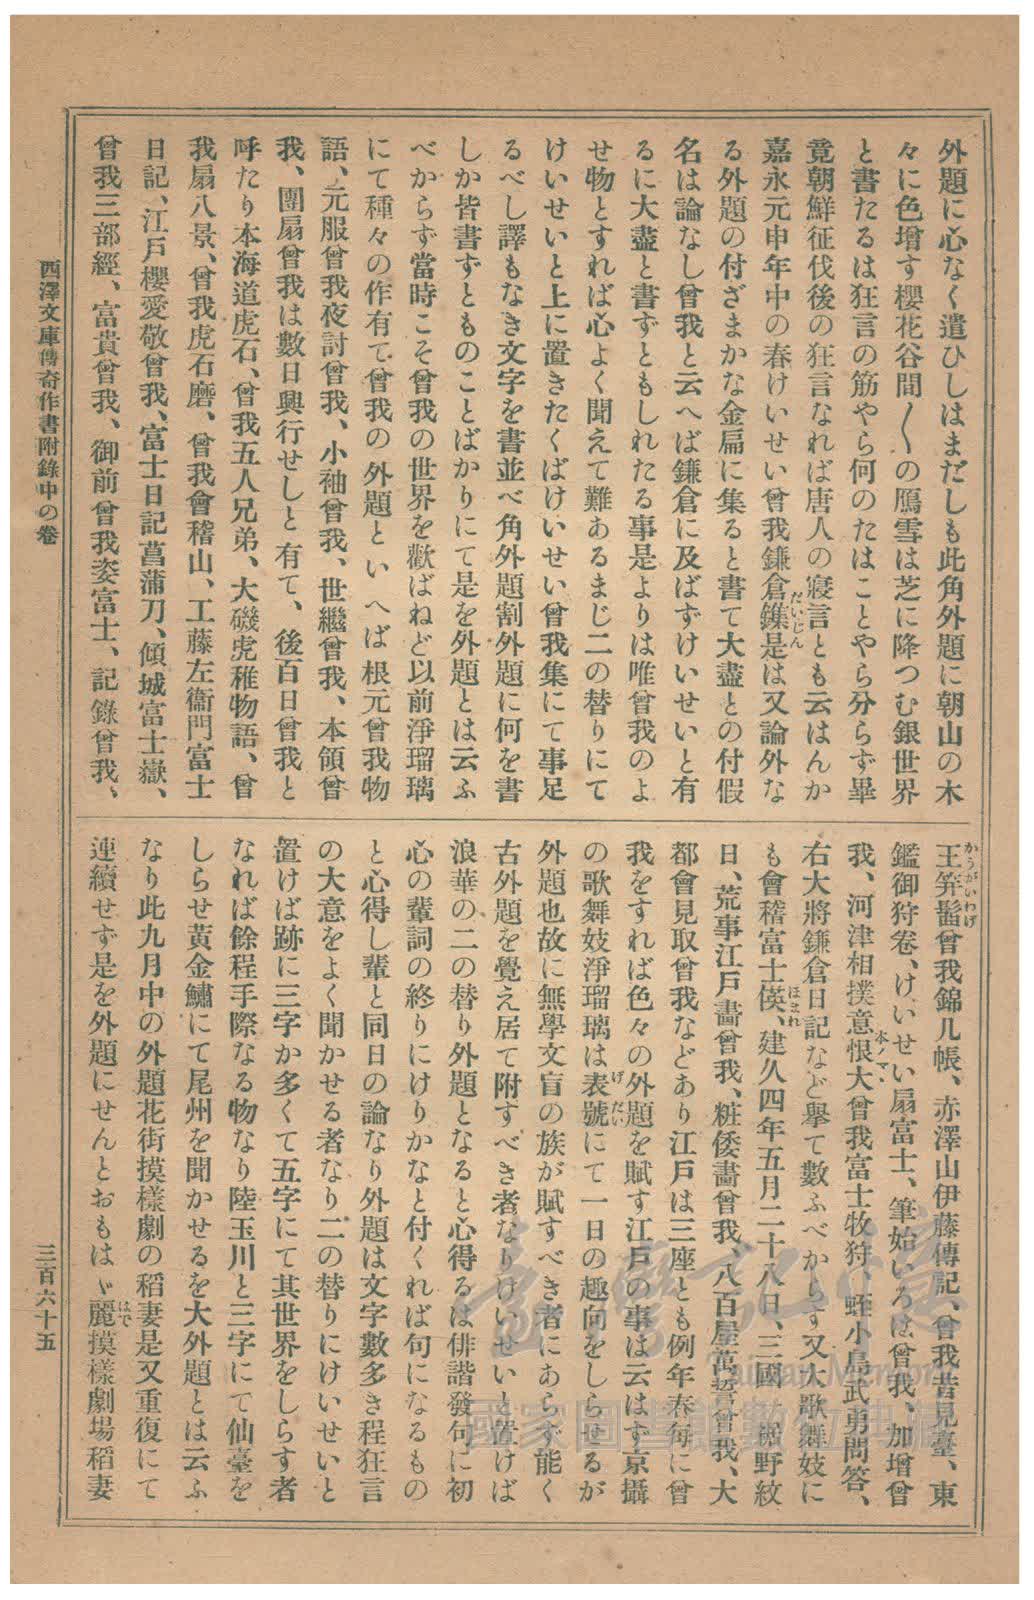 外題に心なく遣ひしはまだしも此角外題に朝山の木
々に色增す櫻花谷間〱の鴈雪は芝に降つむ銀世界
と書たるは狂言の筋やら何のたはことやら分らず畢
竟朝鮮征伐後の狂言なれば唐人の寢言とも云はんか
嘉永元申年中の春けいせい曾我鎌倉鏶是は又論外な
だいじん
る外題の付ざまかな金扁に集ると書て大盡との付假
名は論なし曾我と云へば鎌倉に及ばずけいせいと有
るに大盡と書ずともしれたる事是よりは唯曾我のよ
せ物とすれば心よく聞えて難あるまじ二の替りにて
けいせいと上に置きたくばけいせい曾我集にて事足
るべし譯もなき文字を書並べ角外題割外題に何を書
しか皆書ずとものことばかりにて是を外題とは云ふ
べからず當時こそ曾我の世界を歡ばねど以前淨瑠璃
にて種々の作有て曾我の外題といへば根元曾我物
語、元服曾我夜討曾我、小袖曾我、世繼曾我、本領曾
我、團扇曾我は數日興行せしと有て、後百日曾我と
呼たり本海道虎石、曾我五人兄弟、大磯虎稚物語、曾
我扇八景、曾我虎石磨、曾我會稽山、工藤左衞門富士
日記、江戶櫻愛敬曾我、富士日記菖蒲刀、傾城富士嶽、
曾我三部經、富貴曾我、御前曾我姿富士、記錄曾我、
王笄髷曾我錦几帳、赤澤山伊藤傳記、曾我昔見臺、東
かうがいわげ
鑑御狩卷、けいせい扇富士、筆始いろは曾我、加增曾
我、河津相撲意恨大曾我富士牧狩、蛭小島武勇問答、
本ノマヽ
右大將鎌倉日記など擧て數ふべからず又大歌舞妓に
も會稽富士偀、建久四年五月二十八日、三國 裾野紋
ほまれ
日、荒事江戶畵曾我、粧倭畵曾我、八百屋萬誓曾我、大
都會見取曾我などあり江戶は三座とも例年春每に曾
我をすれば色々の外題を賦す江戶の事は云はず京攝
の歌舞妓淨瑠璃は表號にて一日の趣向をしらせるが
げだい
外題也故に無學文盲の族が賦すべき者にあらず能く
古外題を覺え居て附すべき者なりけいせいと置けば
浪華の二の替り外題となると心得るは俳諧發句に初
心の輩詞の終りにけりかなと付くれば句になるもの
と心得し輩と同日の論なり外題は文字數多き程狂言
の大意をよく聞かせる者なり二の替りにけいせいと
置けば跡に三字か多くて五字にて其世界をしらす者
なれば餘程手際なる物なり陸玉川と三字にて仙臺を
しらせ黃金鱐にて尾州を聞かせるを大外題とは云ふ
なり此九月中の外題花街摸樣劇の稻妻是又重復にて
連續せず是を外題にせんとおもはゞ麗摸樣劇場稻妻
はで
西澤文庫傳奇作書附錄中の卷
三百六十五
臺灣記憶
Taiwan Memory
國家圖書館數位典藏